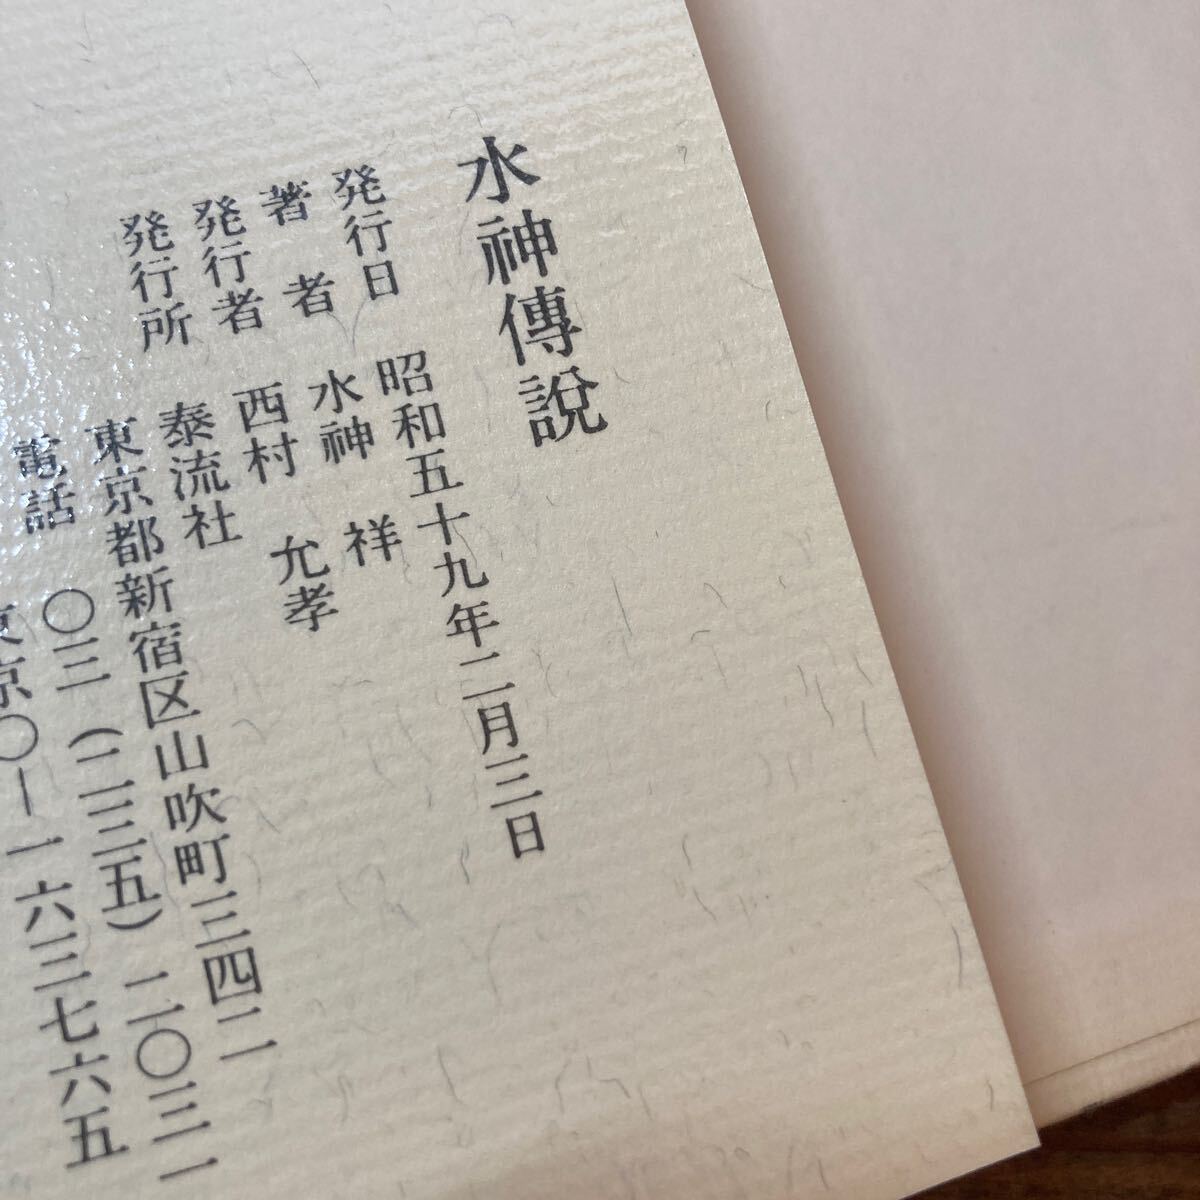 水神傳説
発行日 昭和五十九年二月三日
著者 水神祥
発行者 西村允孝
発行所 泰流社
東京都新宿区山吹町三四二
電話 〇三(二三五)二〇三一
東京〇一一六三七六五